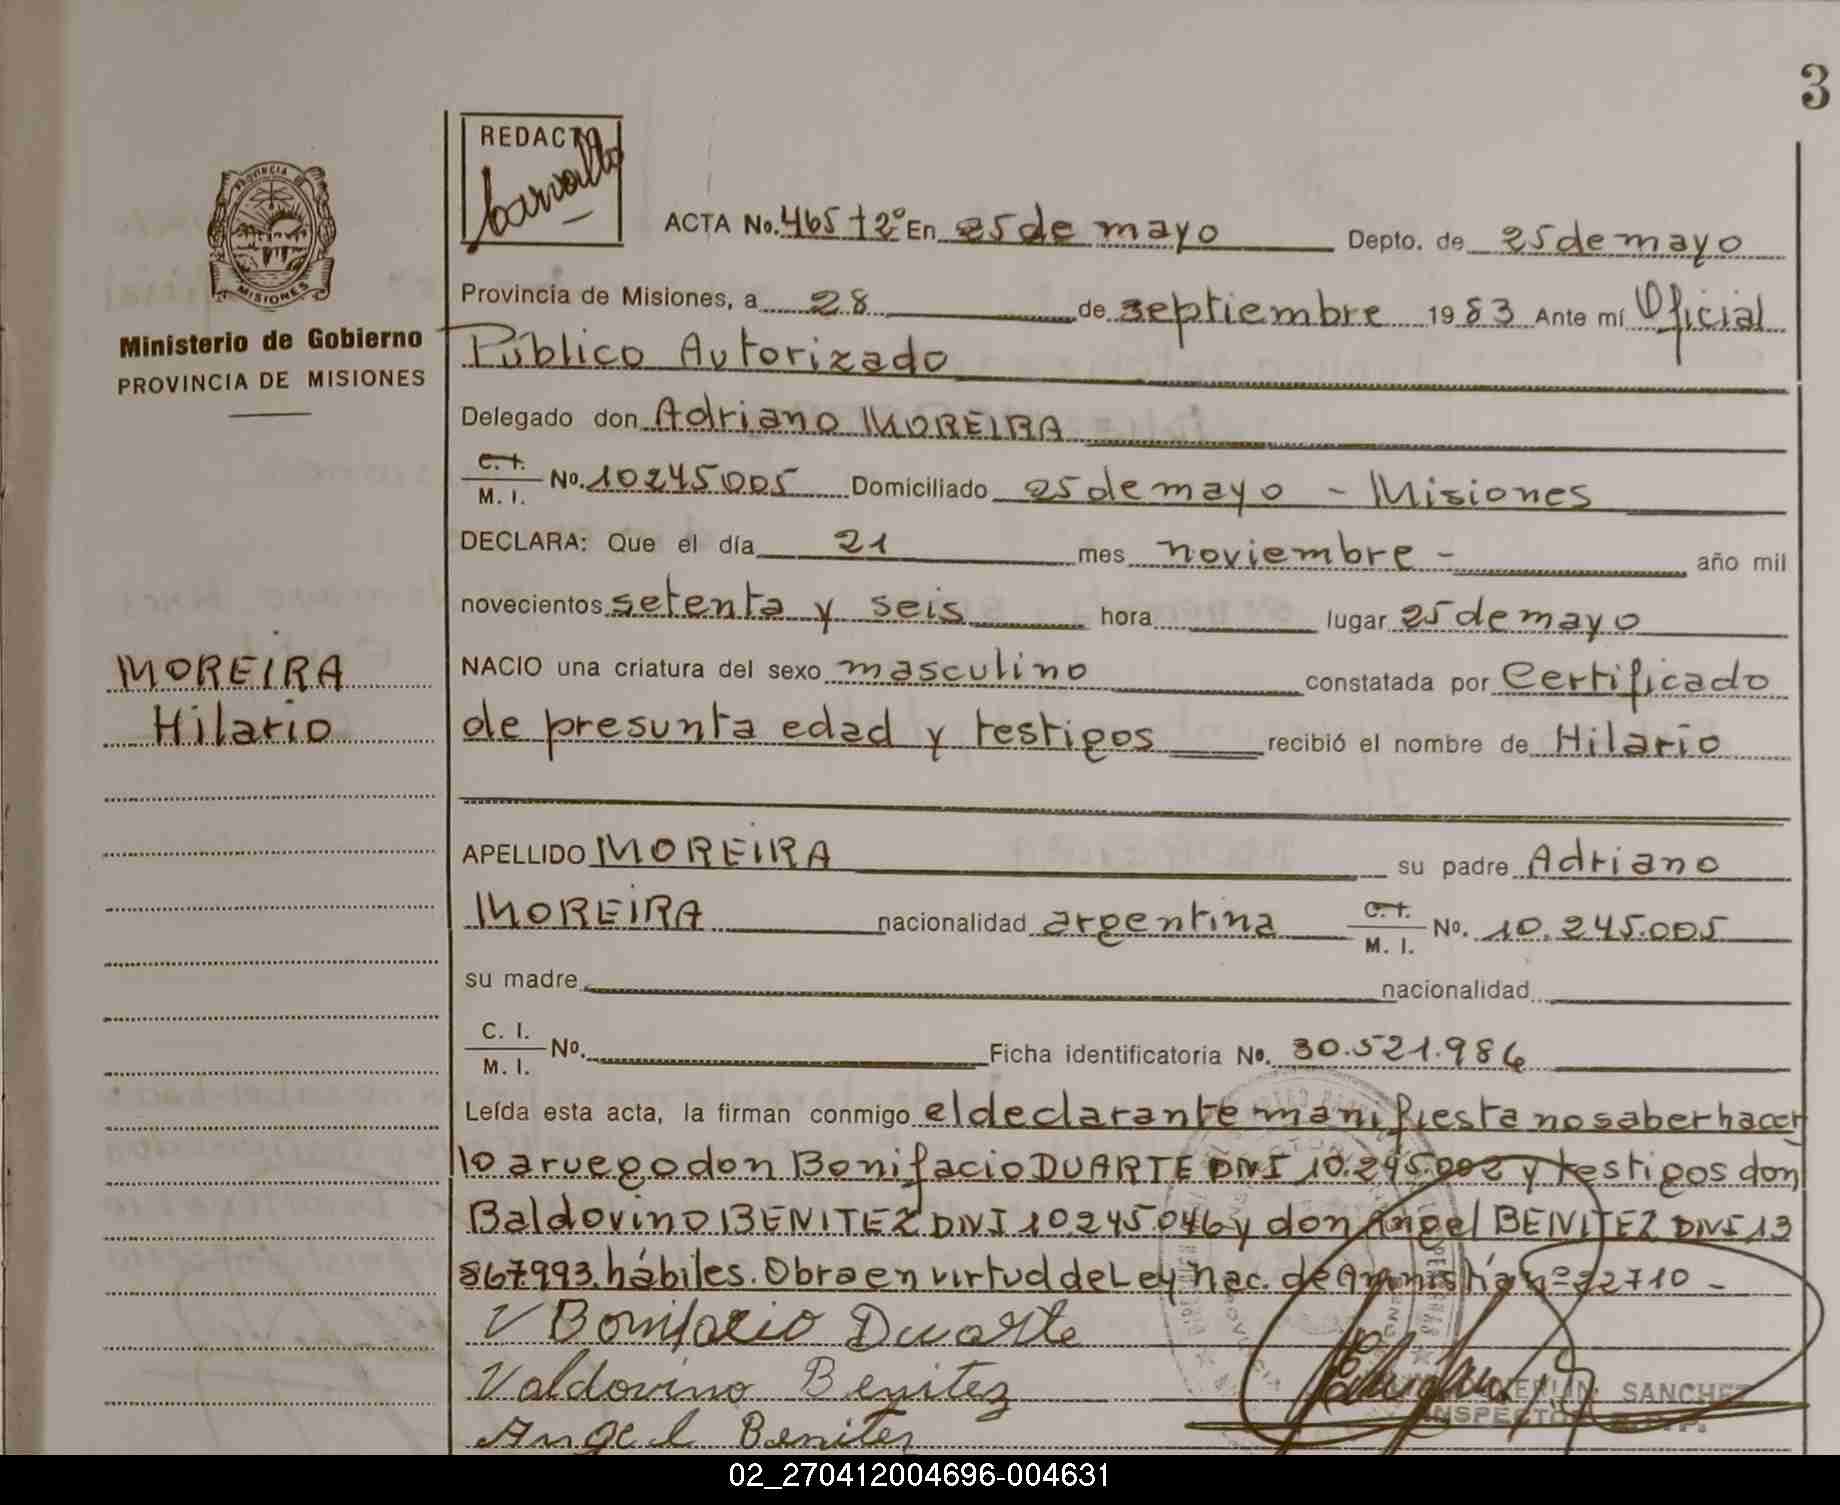 3
REDACTO
Carvallo
PROVINCIA DE
MISIONES
Ministerio de Gobierno
PROVINCIA DE MISIONES
ACTA No. 465 t 2º En 25 de mayo Depto. de 25 de mayo
Provincia de Misiones, a 28 de septiembre 1983 Ante mí Oficial
Público Autorizado
Delegado don Adriano MOREIRA
C. I. / M. I. No. 10245005 Domiciliado 25 de mayo - Misiones
DECLARA: Que el día 21 mes noviembre - año mil
novecientos setenta y seis hora lugar 25 de mayo
MOREIRA
Hilario
NACIO una criatura del sexo masculino constatada por Certificado
de presunta edad y testigos recibió el nombre de Hilario
APELLIDO MOREIRA su padre Adriano
MOREIRA nacionalidad argentina C. I. / M. I. No. 10.245.005
su madre nacionalidad
C. I. / M. I. No. Ficha identificatoria No. 30.521.986
Leída esta acta, la firman conmigo el declarante manifiesta no saber hacer
lo a ruego don Bonifacio DUARTE DNI 10.245.002 y testigos don
Baldovino BENITEZ DNI 10.245.046 y don Angel BENITEZ DNI 13
867.993. hábiles. Obra en virtud de Ley Nac. de Amnistía nº 22710 -
Bonifacio Duarte
Valdovino Benitez
Angel Benitez
SANCHEZ
INSPECTOR
02_270412004696-004631